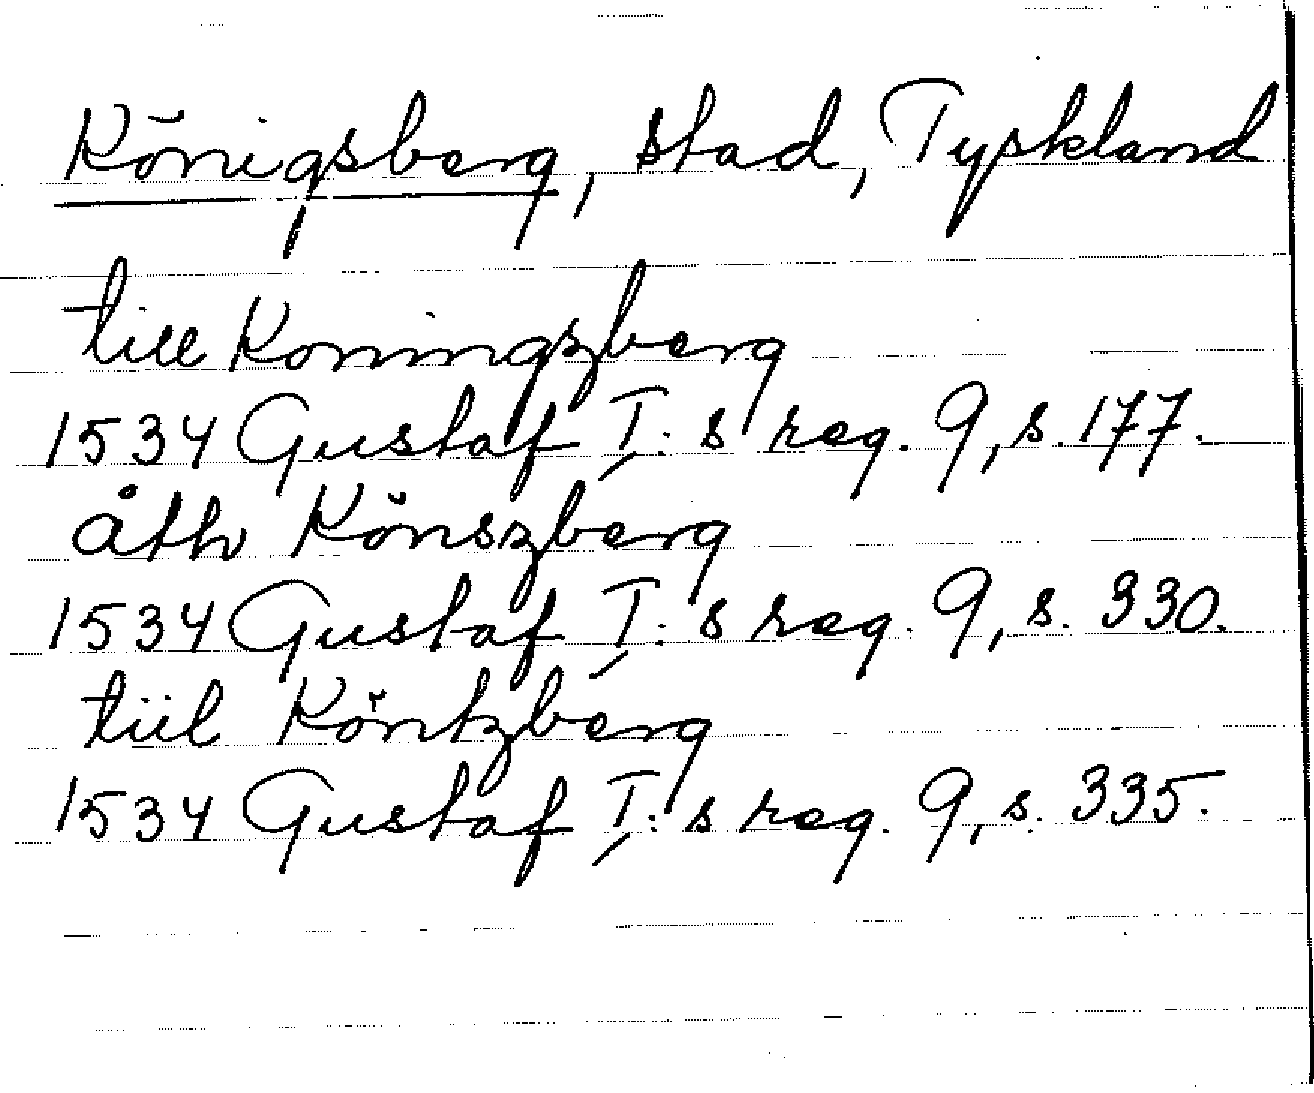 Königsberg, stad, Tyskland
till Koningzberg
1534 Gustaf I:s reg. 9, s. 177.
åth Könszberg
1534 Gustaf I:s reg. 9, s. 330.
tiil Köntzberg
1534 Gustaf I:s reg. 9, s. 335.